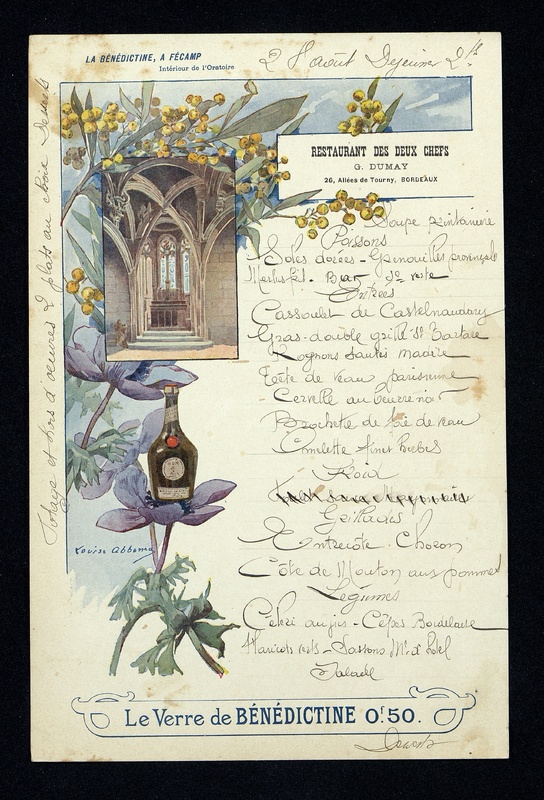 LA BÉNÉDICTINE, A FÉCAMP
Intérieur de l'Oratoire
2 8 août Dejeuner 2.
RESTAURANT DES DEUX CHEFS
G. DUMAY
26, Allées de Tourny, BORDEAUX
Potage et hors d'oeuvres 2 plats au choix Desserts
Soupe Printaniere
Poissons
Soles dorées - Grenouilles provençale
Merlus frit - sce verte
Entrées
Cassoulet de Castelnaudary
Gras-double grillé Sce Tartare
Rognons sautés madère
Tete de veau parisienne
Cervelle au beurre noir
Brochette de foie de veau
Omelette fines herbes
Froid
Grillades
Entrecote Choron
Côte de Mouton aux pommes
Légumes
Céleri au jus - Cêpes Bordelaise
Haricots verts - Mtre d'Hotel
Salade
Louise Abbema
Le Verre de BÉNÉDICTINE 0f.50.
Desserts